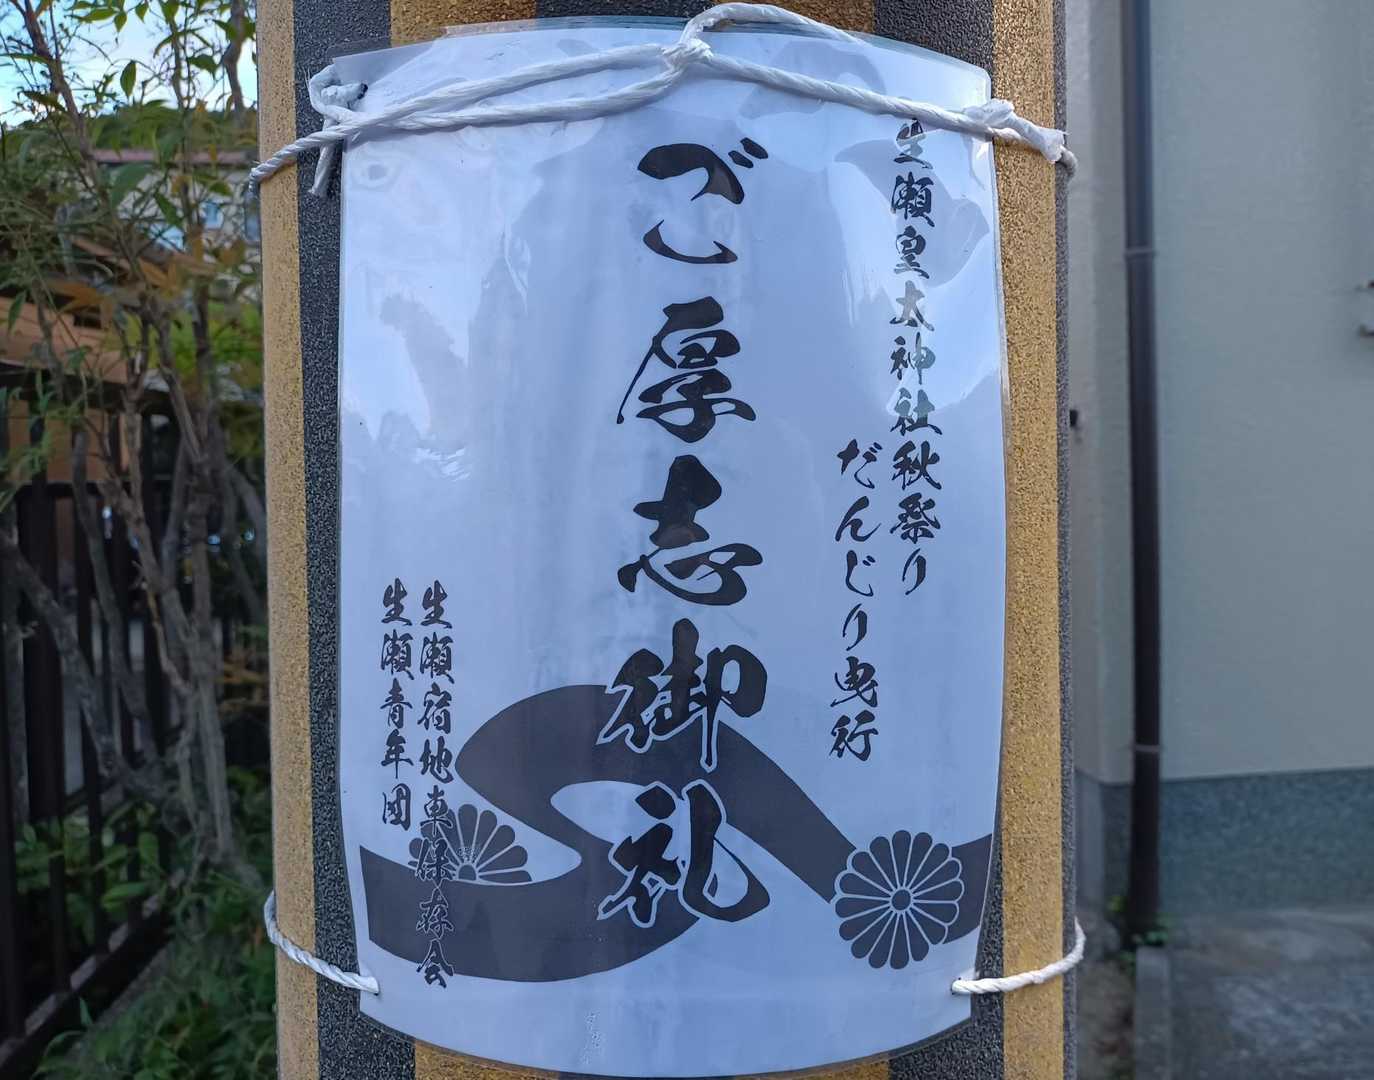 生瀬皇太神社秋祭り
だんじり曳行
ご厚志御礼
生瀬宿地車保存会
生瀬青年団